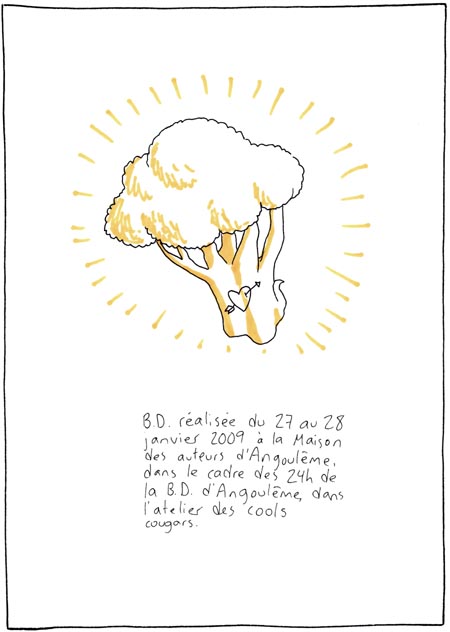 B.D. réalisée du 27 au 28
janvier 2009 à la Maison
des auteurs d'Angoulême,
dans le cadre des 24h de
la B.D. d'Angoulême, dans
l'atelier des cools
cougars.